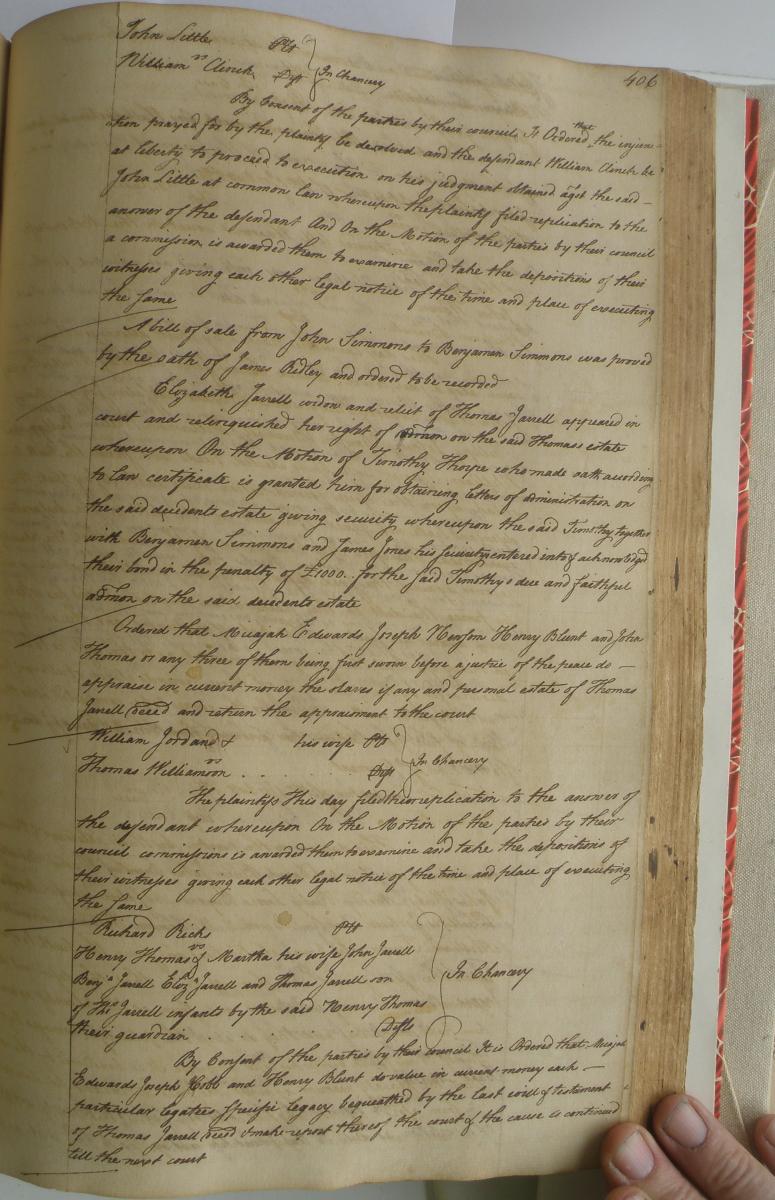 406
John Little Plt
vs
William Clinch Deft In Chancery
By Consent of the parties by their councils It is Ordered that the injunc-
tion prayed for by the plaintiff be desolved and the defendant William Clinch be
at liberty to proceed to execution on his judgment obtained agst the said -
John Little at common law whereupon the plaintiff filed replication to the
answer of the defendant And On the Motion of the parties by their council
a commission is awarded them to examine and take the depositions of their
witnesses giving each other legal notice of the time and place of executing
the same
A bill of sale from John Simmons to Benjamen Simmons was proved
by the oath of James Ridley and ordered to be recorded
Elizabeth Jarrell widow and relict of Thomas Jarrell appeared in
court and relinquished her right of admon on the said Thomas's estate
whereupon On the Motion of Timothy Thorpe who made oath according
to law certificate is granted him for obtaining letters of administration on
the said decedents estate giving security whereupon the said Timothy together
with Benjamen Simmons and James Jones his security entered into & acknowledged
their bond in the penalty of £1000. for the said Timothy's due and faithful
admon on the said decedents estate
Ordered that Micajah Edwards Joseph Newsom Henry Blunt and John
Thomas or any three of them being first sworn before a justice of the peace do -
appraise in current money the slaves if any and personal estate of Thomas
Jarrell Deced and return the appraisment to the court
William Jordan & his wife Plts
vs
Thomas Williamson . . . . Deft In Chancery
The plaintiffs This day filed their replication to the answer of
the defendant whereupon On the Motion of the parties by their
council commissions is awarded them to examine and take the depositions of
their witnesses giving each other legal notice of the time and place of executing
the same
Richard Ricks Plt
vs
Henry Thomas & Martha his wife John Jarrell
Benja Jarrell Eliza Jarrell and Thomas Jarrell son
of Thos Jarrell infants by the said Henry Thomas
their guardian . . . . Defts In Chancery
By Consent of the parties by their council It is Ordered that Micajah
Edwards Joseph and Henry Blunt do value in current money each -
particular legatees specific legacy bequeathed by the last will & testament
of Thomas Jarrell Deced & make report thereof the court & the cause is continued
till the next court